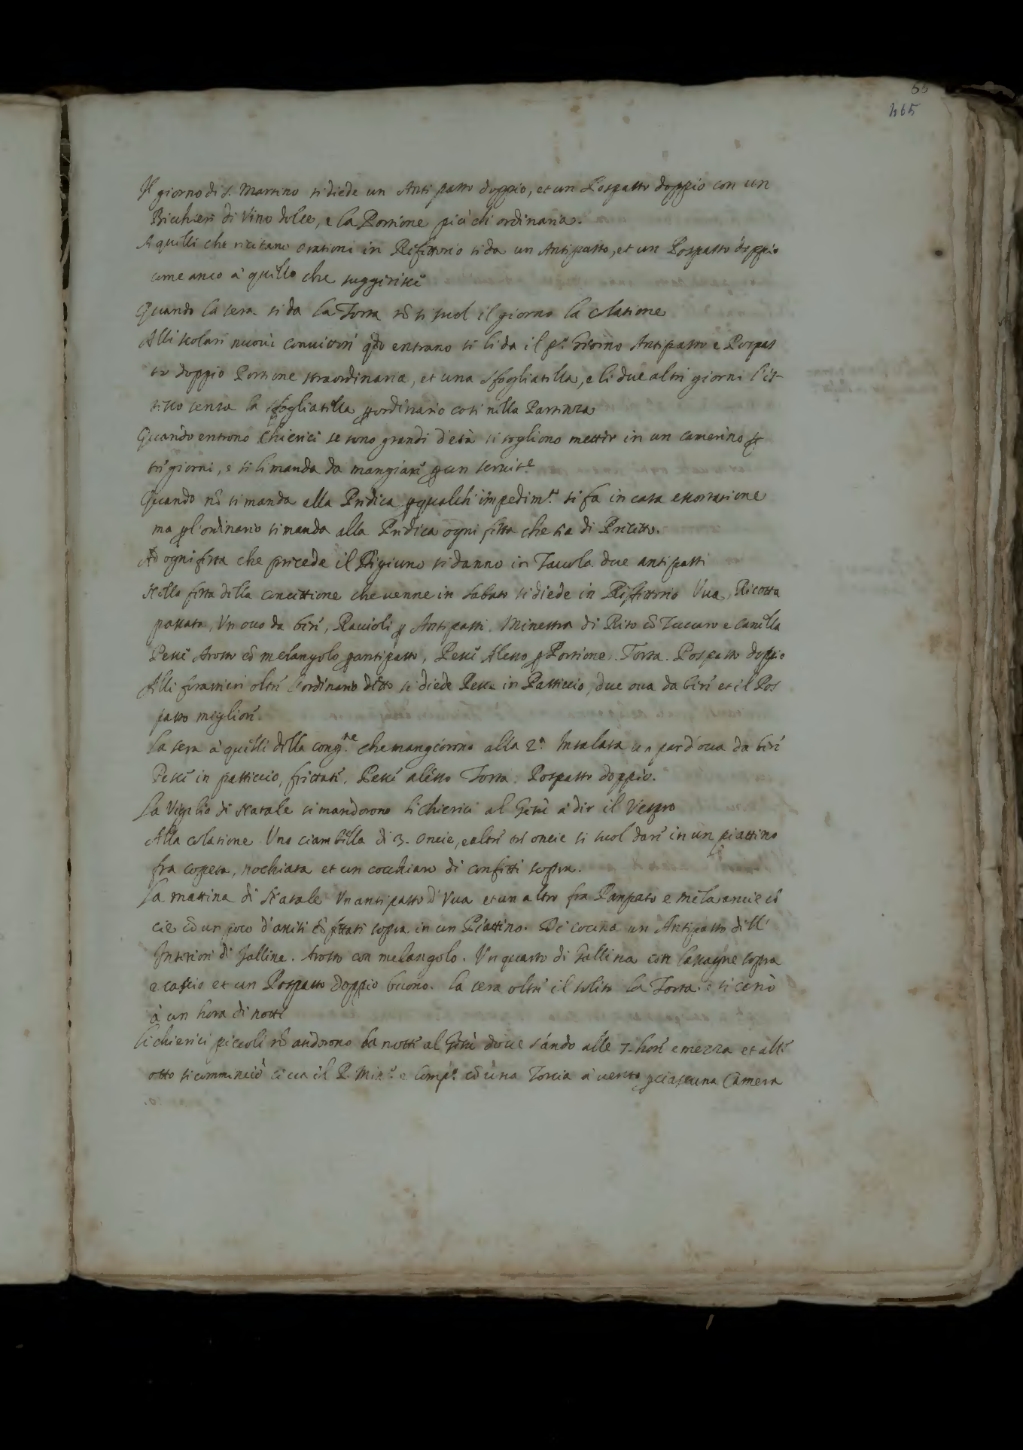 465
Il giorno di S. Martino si diede un Antipasto doppio, et un Pospasto doppio con un
Bicchieri di Vino dolce, e la Portione più ch ordinaria.
A quelli che recitano orationi in Refettorio si da un Antipasto, et un Pospasto doppio
come anco a quello che suggerisce
Quando la sera si da la Torta nõ si suol il giorno la Colatione
Alli scolari nuovi convittori qdo entrano si li da il pº giorno Antipasto e Pospas
to doppio Portione straordinaria, et una sfogliatella, e li due altri giorni l'is-
tesso senza la sfogliatella ordinario così nella Partenza
Quando entrono Chierici se sono grandi d'età si sogliono metter in un camerino p
tre giorni, e si li manda da mangiare p un servit.e
Quando nõ si manda alla Predica p qualche impedim.to si fa in casa essortatione
ma p l'ordinario si manda alla Predica ogni festa che sia di Precetto.
Ad ogni festa che precede il Digiuno si danno in Tavola due antipasti
Nella festa della Concettione che venne in Sabato si diede in Refettorio Uva, Ricotta
passata, Un ovo da bere, Ravioli p Antipasti. Minestra di Riso cõ Zuccaro e Canella
Pesce Arosto cõ melangolo p antipasto, Pesce Alesso p Portione. Torta. Pospasto doppio
Alli forastieri oltre l'ordinario detto si diede Pesce in Pasticcio, due ova da bere et il Pos
pasto migliore.
La sera a quelli della cong.ne che mangiorono alla 2ª Insalata un par d'ova da bere
Pesce in pasticcio, frittate, Pesce alesso Torta. Pospasto doppio.
La Vigilia di Natale si mandorono li chierici al Giesù a dir il Vespro
Alla Colatione Una ciambella di 3. oncie, e altre tre oncie si suol dare in un piattino
fra copeta, nochiata et un cocchiaro di confetti sopra.
La mattina di Natale Un antipasto d'Uva et un altro fra Panpato e melarancie
cõ un poco d'aneti sopra in un Piattino. De cocina un Antipasto dell'
Interiori di Galline. Arosto con melangolo. Un quarto di Gallina con lasagne sopra
e cascio et un Pospasto doppio buono. La sera oltre il solito la Torta: si cenò
à un hora di notte
Li chierici piccoli nõ andorono la notte al Giesù dove s'andò alle 7. hore e mezza et alle
otto si comminciò il P. Min.º e comp.º cõ una Torcia a vento p ciascuna Camera